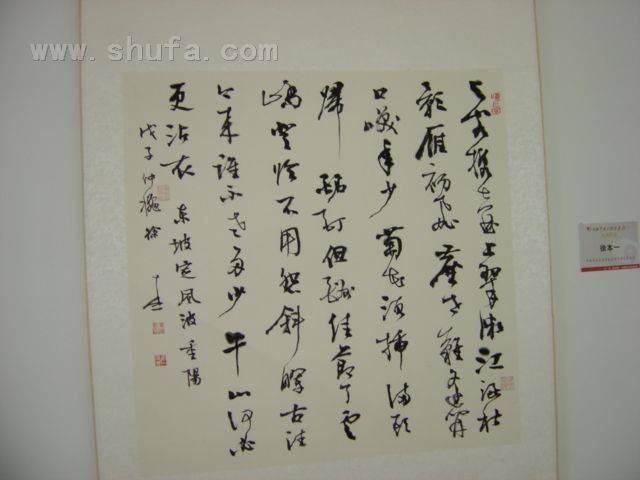 www.shufa.com
与客携壶上翠微江涵秋
影雁初飞尘世难逢开
口笑年少菊花须插满头
归酩酊但酬佳节了云
峤登临不用怨斜晖古往
今来谁不老多少牛山何必
更沾衣 东坡定风波重阳
戊子仲龝徐本一
徐本一